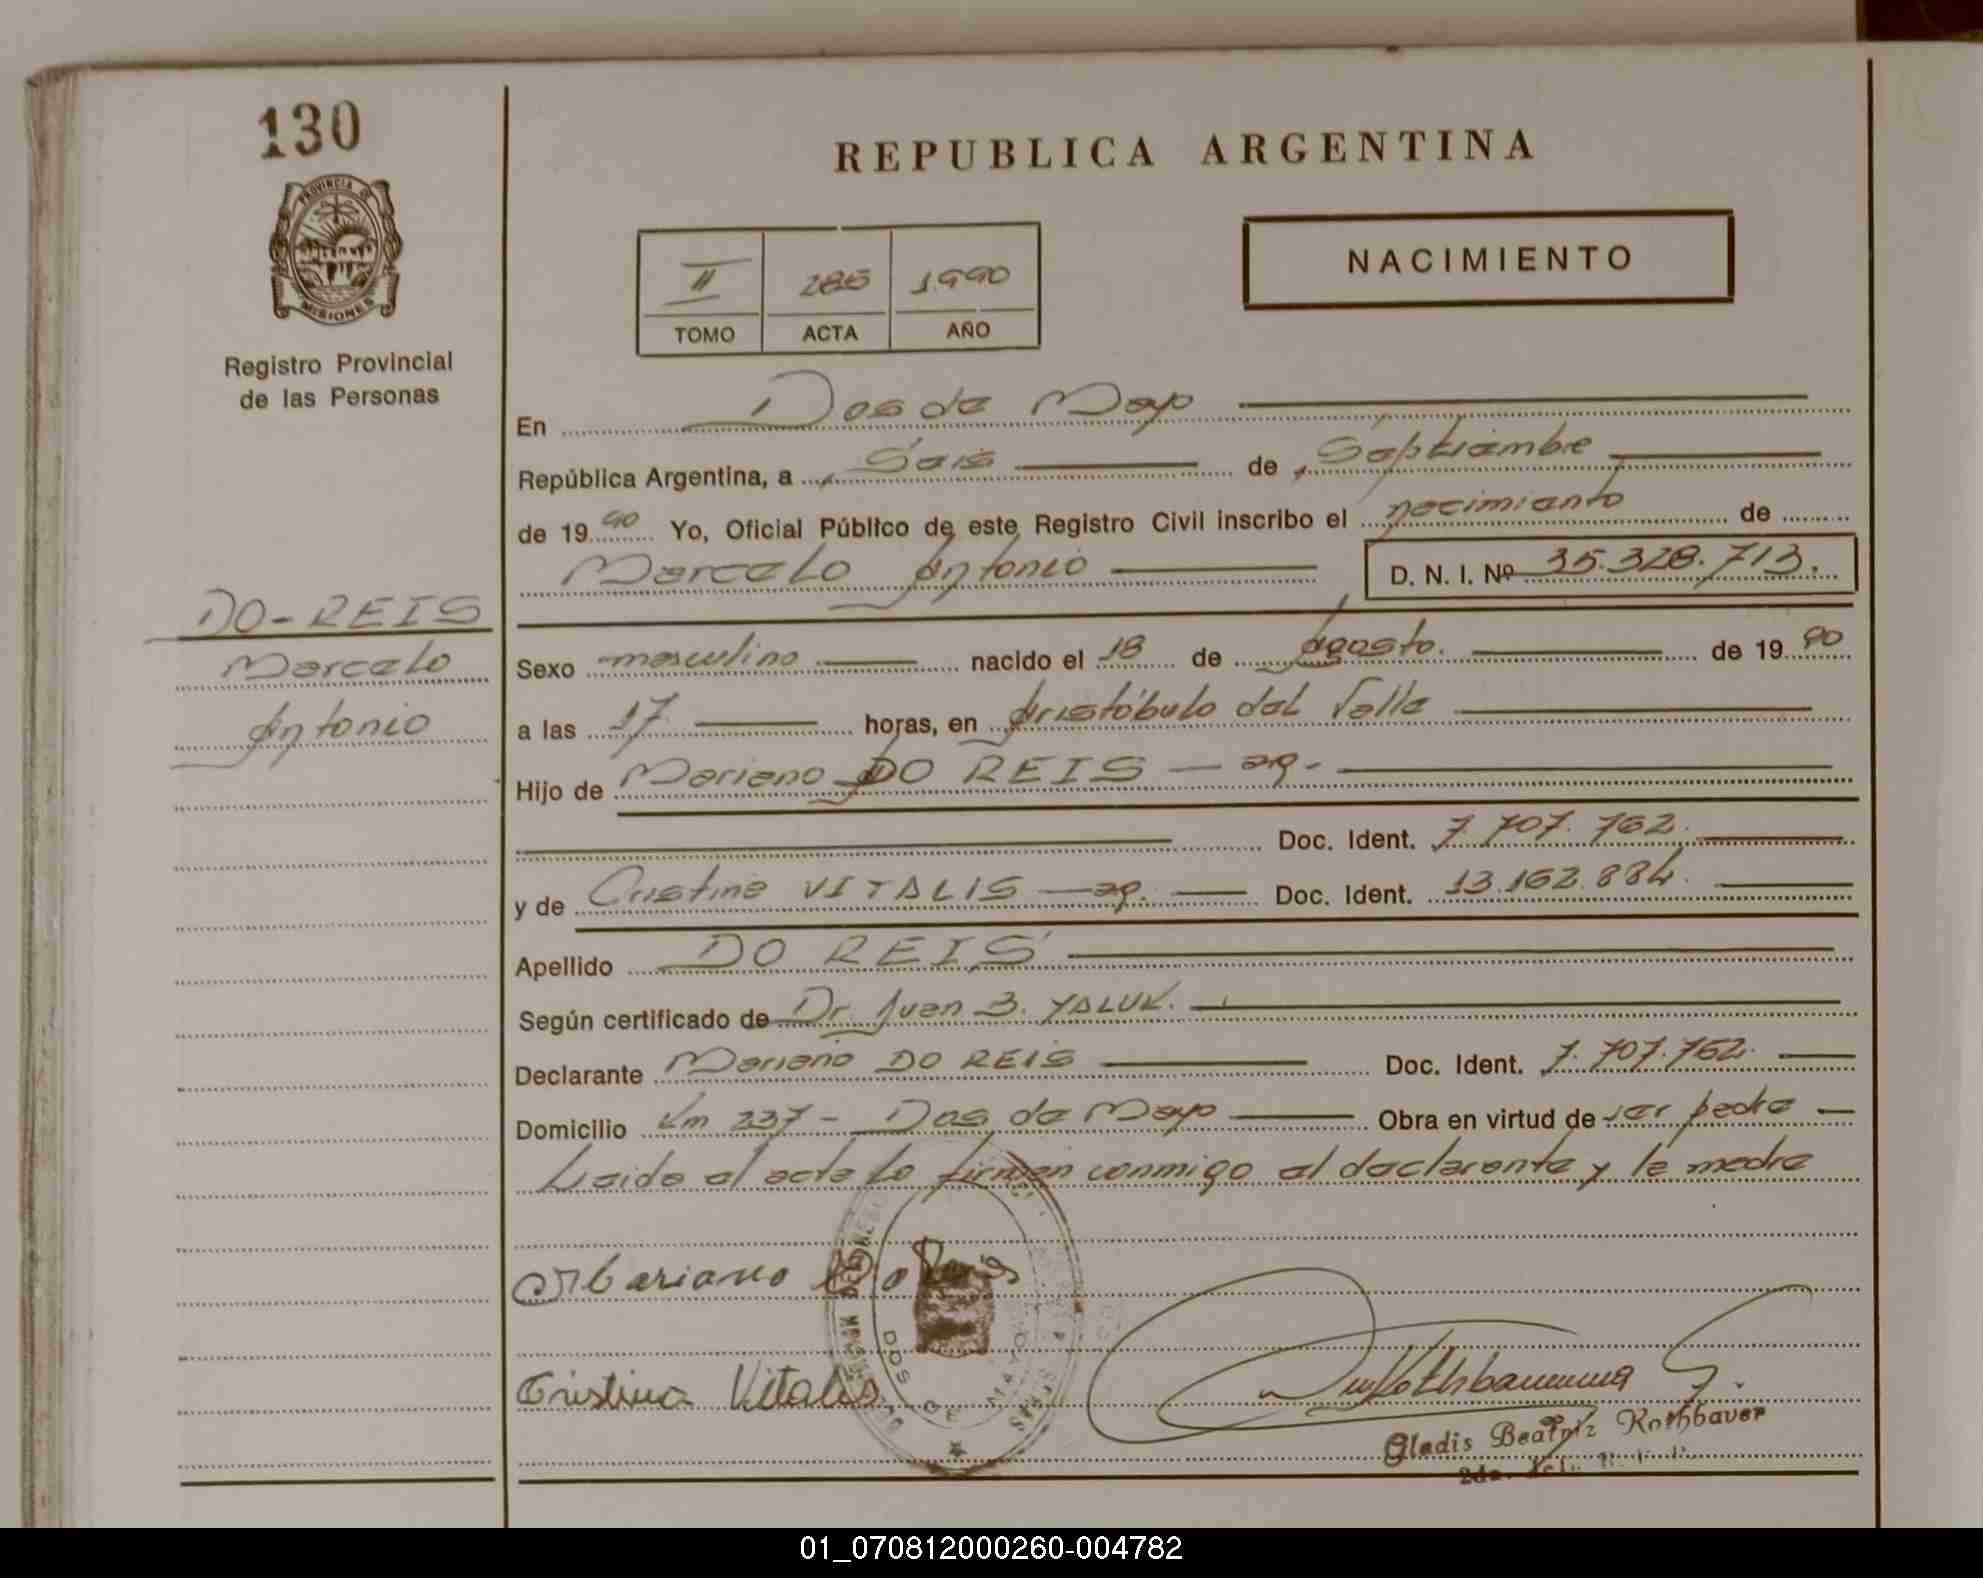 130
PROVINCIA DE
MISIONES
Registro Provincial
de las Personas
DO-REIS
Marcelo
Antonio
REPUBLICA ARGENTINA
NACIMIENTO
II 285 1.990
TOMO ACTA AÑO
En Dos de Mayo
República Argentina, a Seis de Septiembre
de 19 90 Yo, Oficial Público de este Registro Civil inscribo el nacimiento de
Marcelo Antonio D. N. I. Nº 35.328.713.
Sexo masculino nacido el 18 de Agosto. de 19 90
a las 17 horas, en Aristóbulo del Valle
Hijo de Mariano DO REIS - ag.
Doc. Ident. 7.707.762.
y de Cristina VITALIS - ag. Doc. Ident. 13.162.884.
Apellido DO REIS
Según certificado de Dr. Juan B. YALUK.
Declarante Mariano DO REIS Doc. Ident. 7.707.762.
Domicilio Km 237 - Dos de Mayo Obra en virtud de ser padre
Leida el acta lo firman conmigo el declarante y la madre
Mariano Do Reis
Cristina Vitalis
DOS DE MAYO
Gladis Beatriz Rothbauer
01_070812000260-004782